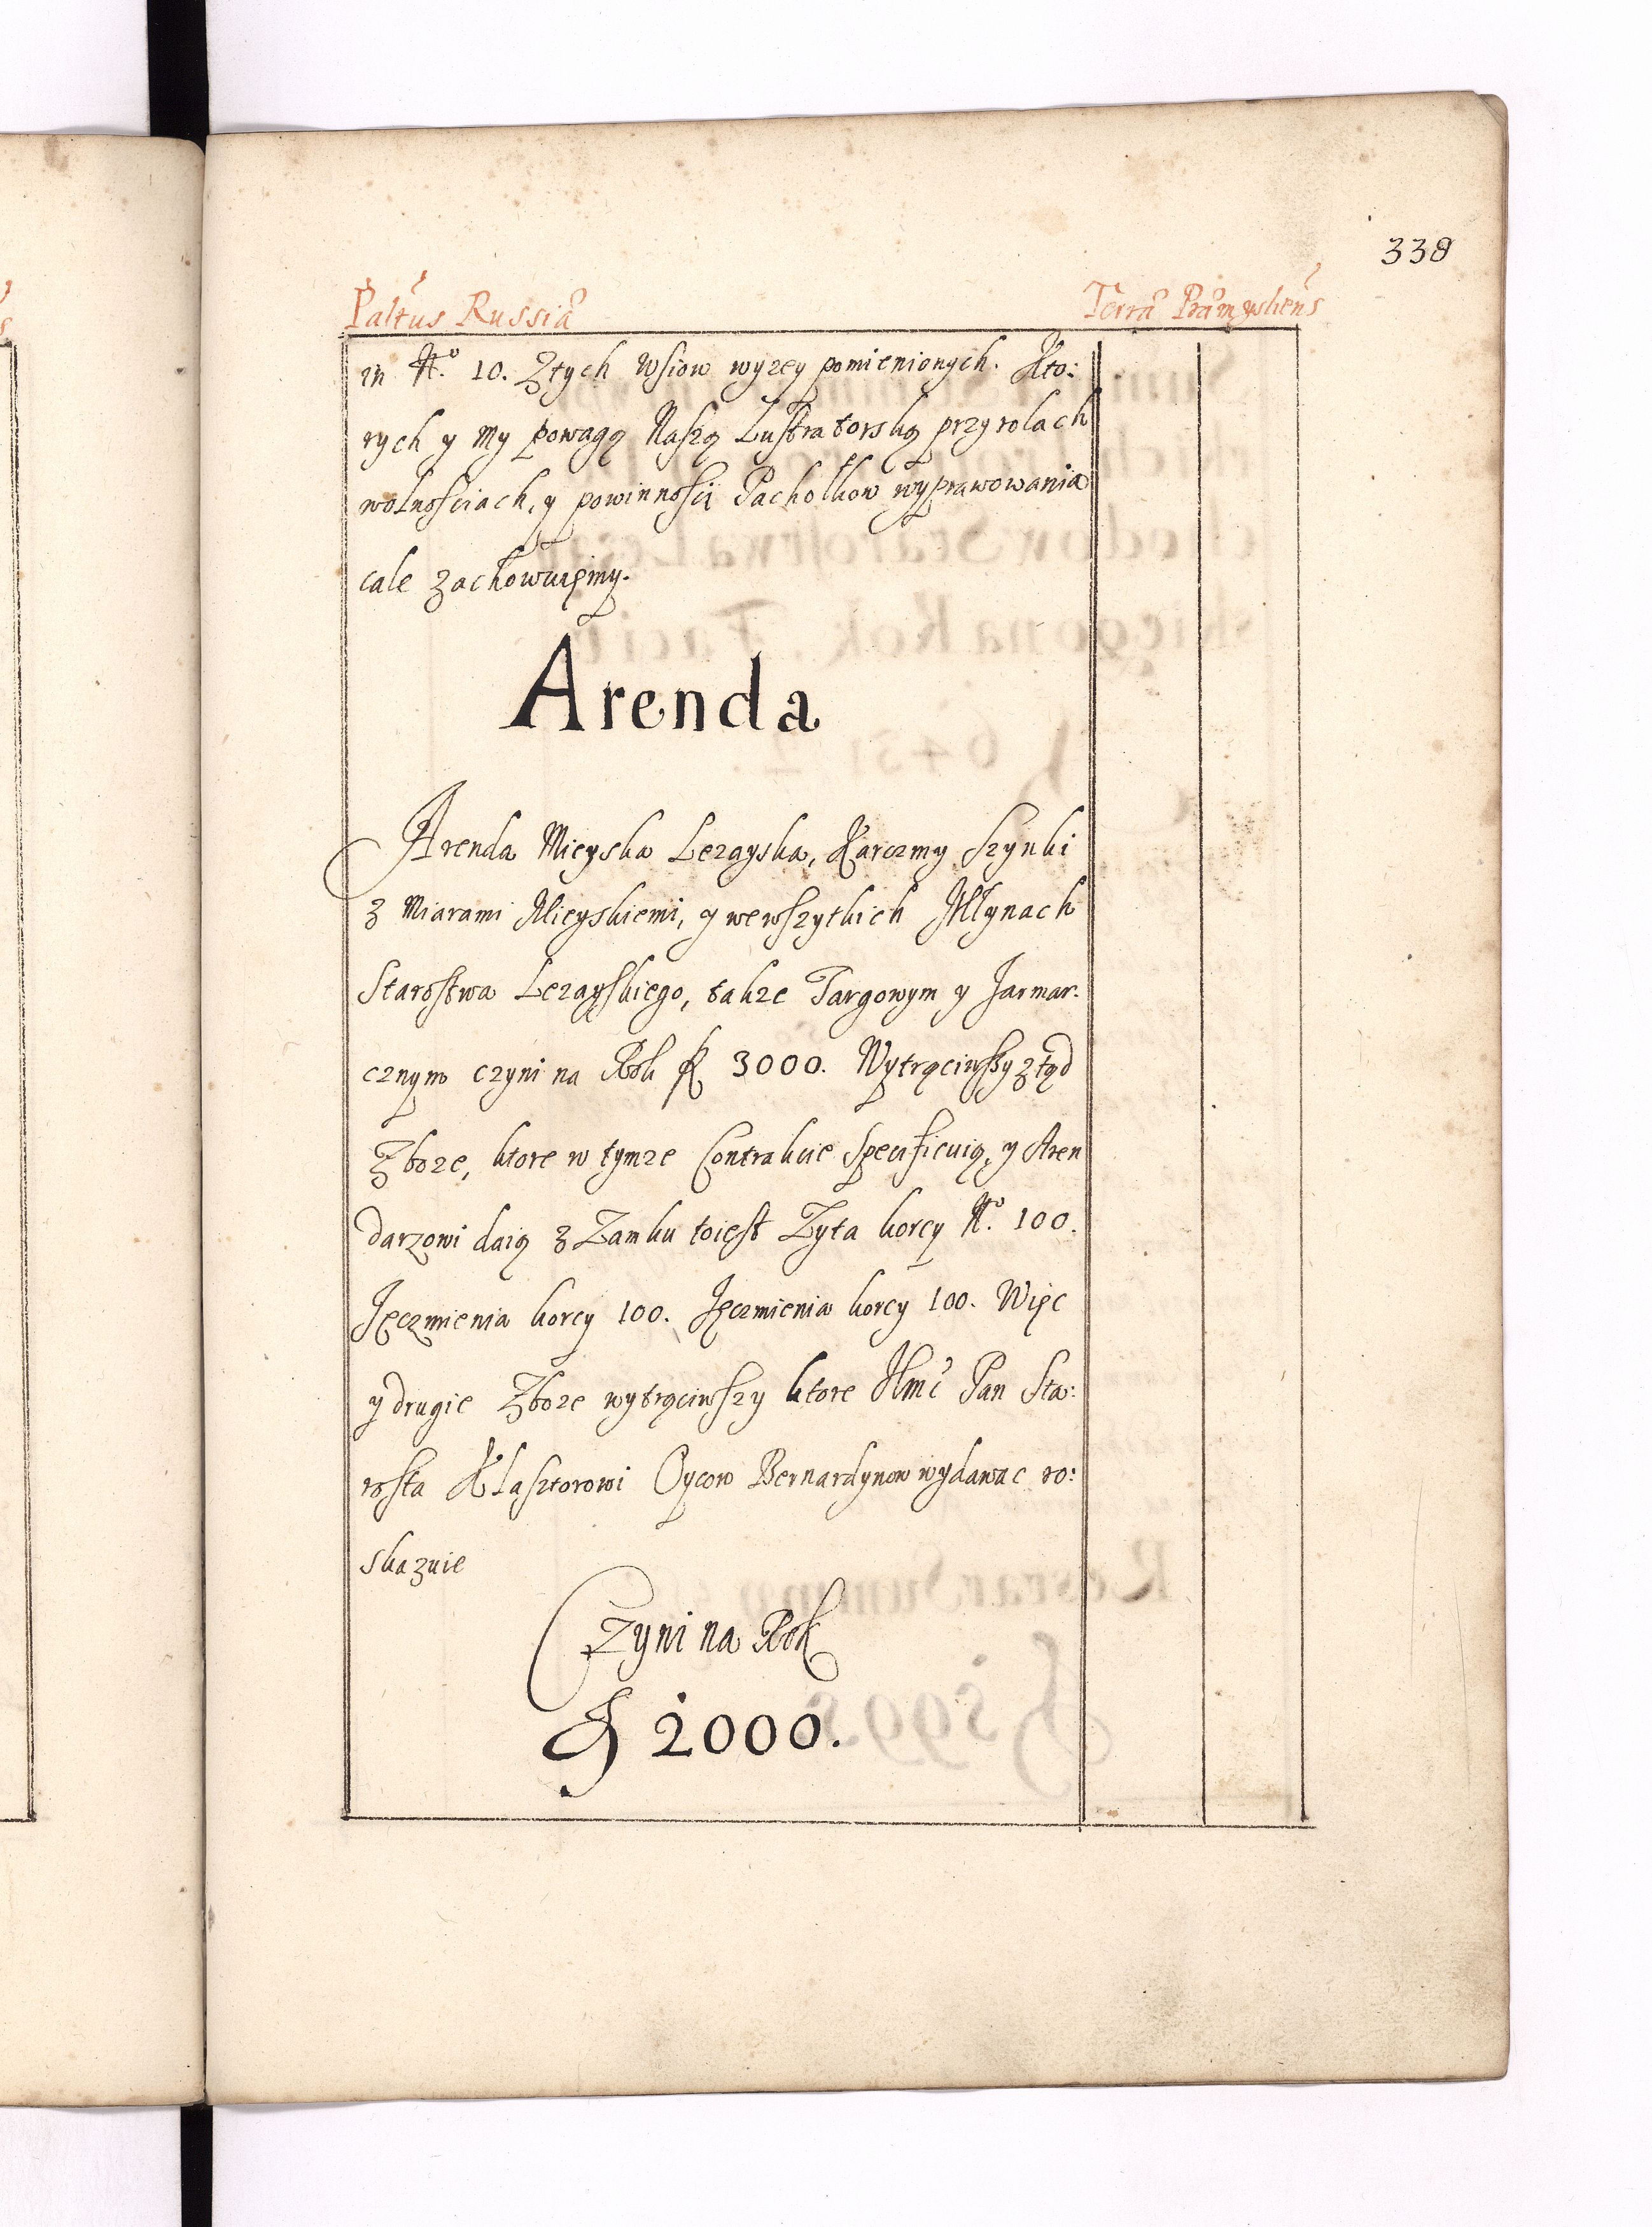 338
Paltus Russia Terra Præmysliens
in No. 10. Ztych Wsiow wyzey pomienionych. Kto:
rych y My powagą Naszą Lustratorską przy rolach
wolnosciach, y powinnosci Pachołkow wyprawowania
cale zachowuięmy.
Arenda
Arenda Mieyska Lezayska, Karczmy Szynki
z Miarami Mieyskiemi, y we wszytkich Młynach
Starostwa Lezayskiego, takze Targowym y Jarmar:
cznym czyni na Rok f 3000. Wytrąciwszy ztąd
Zboze, ktore w tymze Contrakcie Specificuią, y Aren
darzowi daią z Zamku toiest Zyta korcy No. 100.
Jęczmienia korcy 100. Jęczmienia korcy 100. Więc
y drugie Zboze wytrąciwszy ktore Jmć Pan Sta:
rosta Klasztorowi Oycow Bernardynow wydawac ro:
skazuie
Czyni na Rok
f 2000.